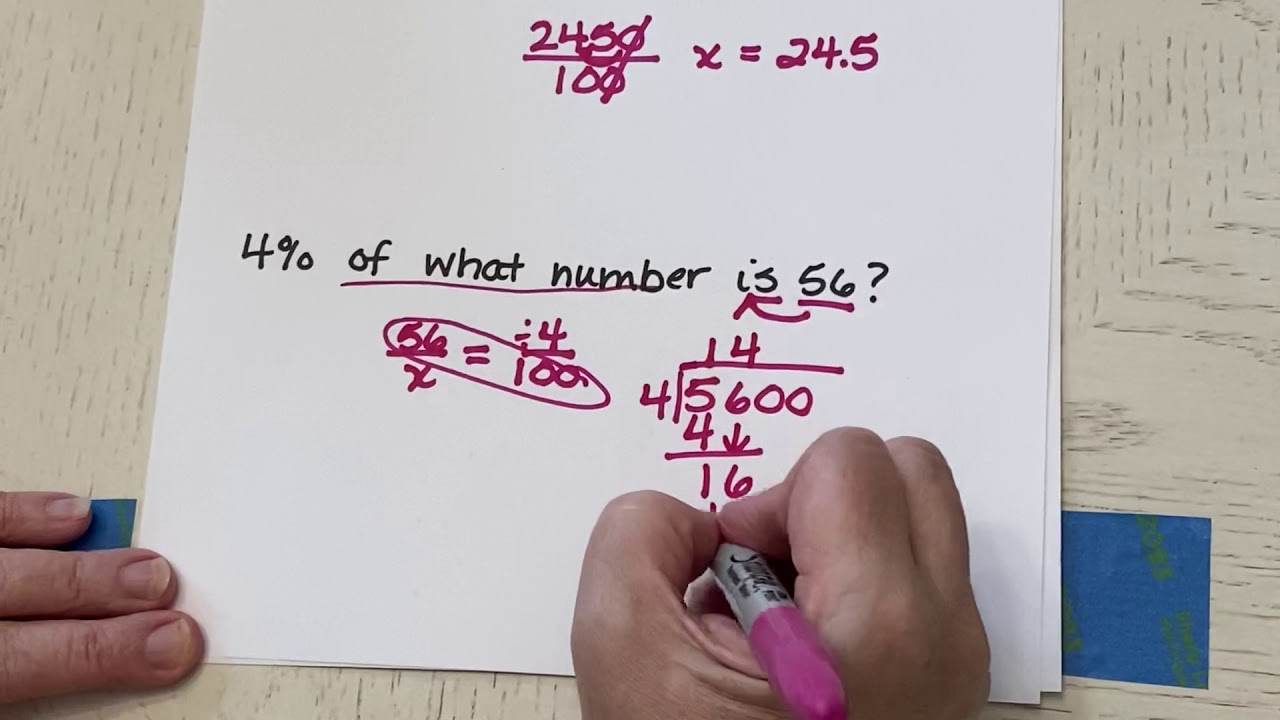 2450
100
x = 24.5
4% of what number is 56?
56
x
=
÷4
100
14
4 5600
4
16
1